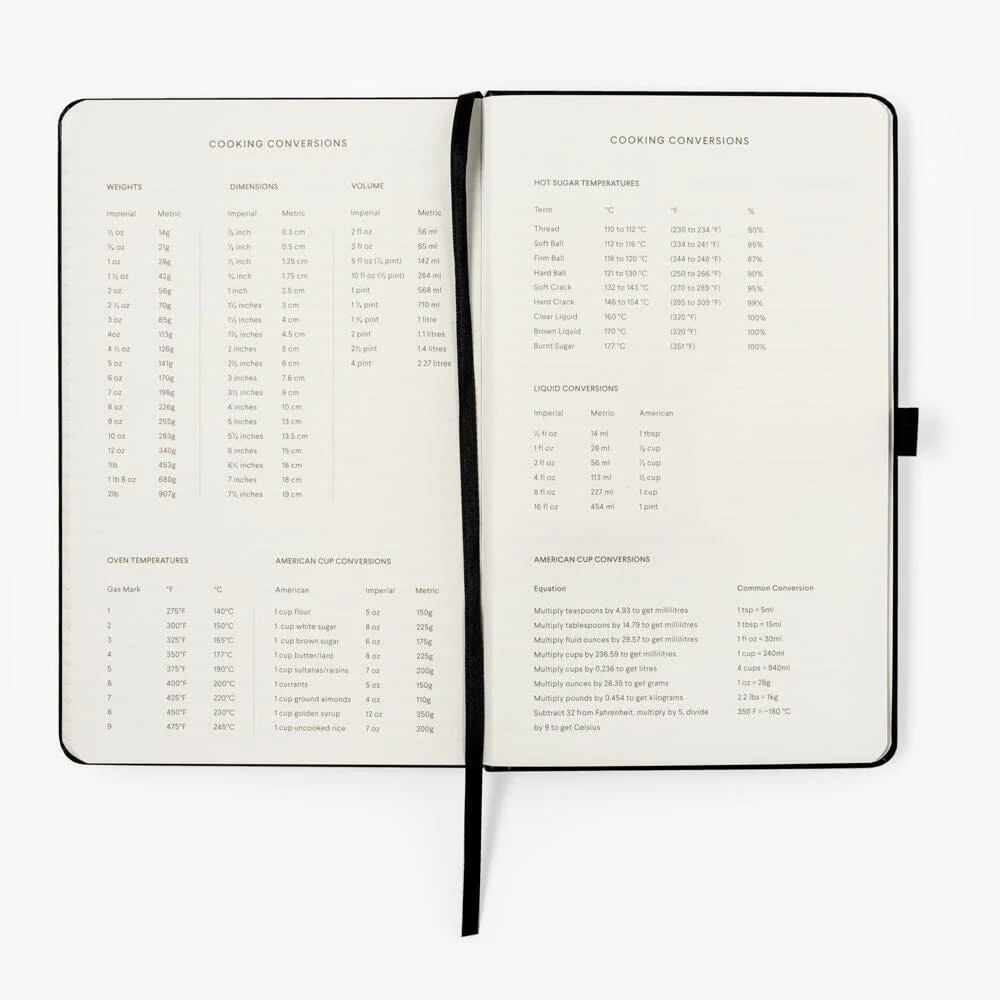 COOKING CONVERSIONS
WEIGHTS DIMENSIONS VOLUME
Imperial Metric Imperial Metric Imperial Metric
½ oz 14g ¼ inch 0.3 cm 2 fl oz 56 ml
¾ oz 21g ¼ inch 0.5 cm 3 fl oz 85 ml
1 oz 28g ½ inch 1.25 cm 5 fl oz (¼ pint) 142 ml
1 ½ oz 42g ¾ inch 1.75 cm 10 fl oz (½ pint) 284 ml
2 oz 56g 1 inch 2.5 cm 1 pint 568 ml
2 ½ oz 70g 1¼ inches 3 cm 1 ¼ pint 710 ml
3 oz 85g 1½ inches 4 cm 1 ¾ pint 1 litre
4oz 113g 1¾ inches 4.5 cm 2 pint 1.1 litres
4 ½ oz 126g 2 inches 5 cm 2½ pint 1.4 litres
5 oz 141g 2½ inches 6 cm 4 pint 2.27 litres
6 oz 170g 3 inches 7.6 cm
7 oz 198g 3½ inches 9 cm
8 oz 226g 4 inches 10 cm
9 oz 255g 5 inches 13 cm
10 oz 283g 5¼ inches 13.5 cm
12 oz 340g 6 inches 15 cm
1lb 453g 6½ inches 16 cm
1 lb 8 oz 680g 7 inches 18 cm
2lb 907g 7½ inches 19 cm
OVEN TEMPERATURES AMERICAN CUP CONVERSIONS
Gas Mark °F °C American Imperial Metric
1 275°F 140°C 1 cup flour 5 oz 150g
2 300°F 150°C 1 cup white sugar 8 oz 225g
3 325°F 165°C 1 cup brown sugar 6 oz 175g
4 350°F 177°C 1 cup butter/lard 8 oz 225g
5 375°F 190°C 1 cup sultanas/raisins 7 oz 200g
6 400°F 200°C 1 currants 5 oz 150g
7 425°F 220°C 1 cup ground almonds 4 oz 110g
8 450°F 230°C 1 cup golden syrup 12 oz 350g
9 475°F 245°C 1 cup uncooked rice 7 oz 200g
COOKING CONVERSIONS
HOT SUGAR TEMPERATURES
Term °C °F %
Thread 110 to 112 °C (230 to 234 °F) 80%
Soft Ball 112 to 116 °C (234 to 241 °F) 85%
Firm Ball 118 to 120 °C (244 to 248 °F) 87%
Hard Ball 121 to 130 °C (250 to 266 °F) 90%
Soft Crack 132 to 143 °C (270 to 289 °F) 95%
Hard Crack 146 to 154 °C (295 to 309 °F) 99%
Clear Liquid 160 °C (320 °F) 100%
Brown Liquid 170 °C (320 °F) 100%
Burnt Sugar 177 °C (351 °F) 100%
LIQUID CONVERSIONS
Imperial Metric American
½ fl oz 14 ml 1 tbsp
1 fl oz 28 ml cup
2 fl oz 56 ml ¼ cup
4 fl oz 113 ml ½ cup
8 fl oz 227 ml 1 cup
16 fl oz 454 ml 1 pint
AMERICAN CUP CONVERSIONS
Equation Common Conversion
Multiply teaspoons by 4.93 to get millilitres 1 tsp = 5ml
Multiply tablespoons by 14.79 to get millilitres 1 tbsp = 15ml
Multiply fluid ounces by 29.57 to get millilitres 1 fl oz = 30ml
Multiply cups by 236.59 to get millilitres 1 cup = 240ml
Multiply cups by 0.236 to get litres 4 cups = 940ml
Multiply ounces by 28.35 to get grams 1 oz = 28g
Multiply pounds by 0.454 to get kilograms 2.2 lbs = 1kg
Subtract 32 from Fahrenheit, multiply by 5, divide 350 F = ~180 °C
by 9 to get Celsius